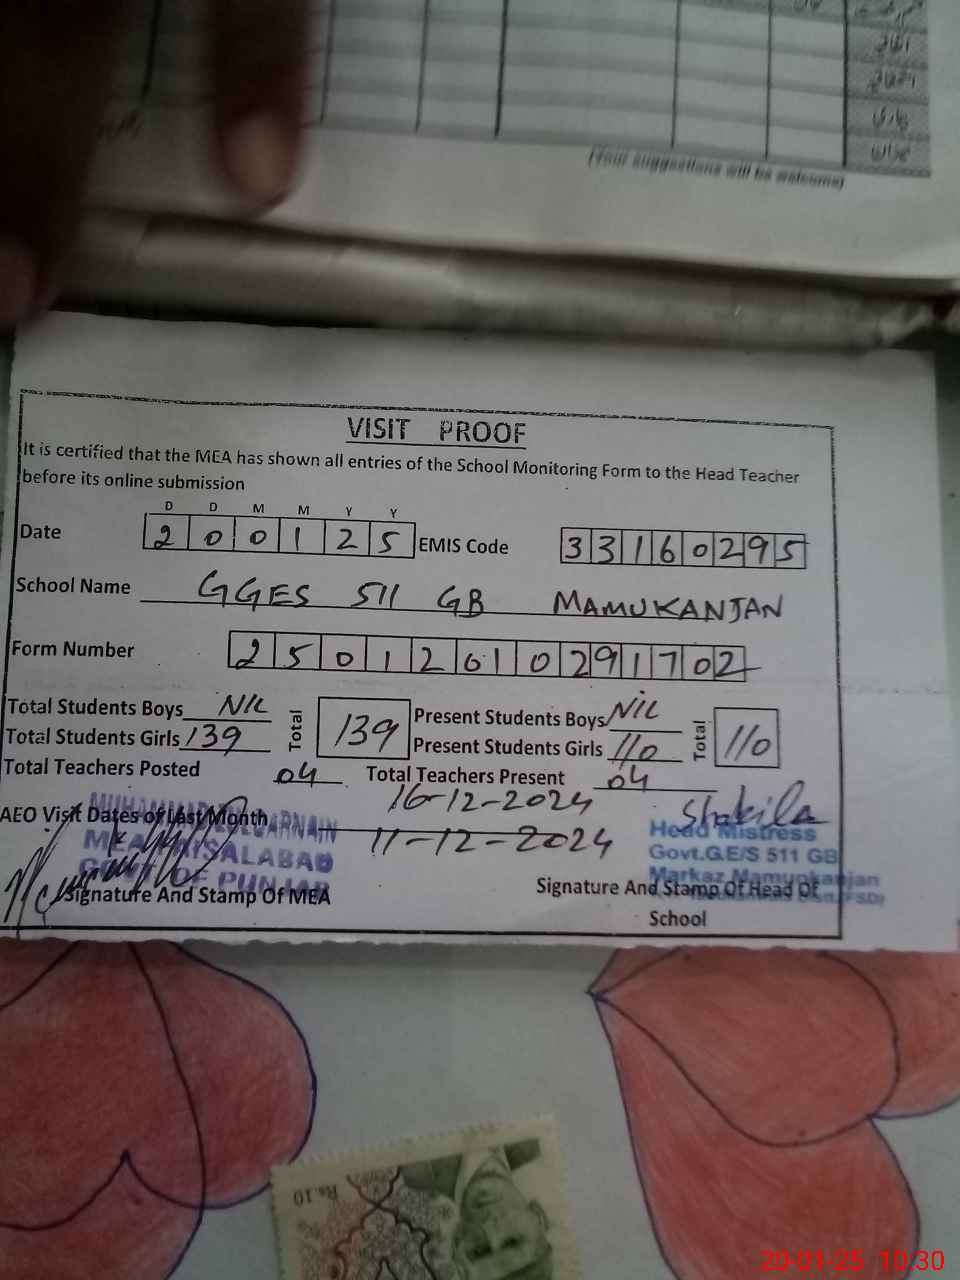 (Your suggestions will be welcome)
VISIT PROOF
It is certified that the MEA has shown all entries of the School Monitoring Form to the Head Teacher
before its online submission
D D M M Y Y
Date 2 0 0 1 2 5 EMIS Code 3 3 1 6 0 2 9 5
School Name GGES 511 GB MAMUKANJAN
Form Number 2 5 0 1 2 0 1 0 2 9 1 7 0 2
Total Students Boys NIL Total 139 Present Students Boys NIL Total 110
Total Students Girls 139 Present Students Girls 110
Total Teachers Posted 04 Total Teachers Present 04
AEO Visit Dates of Last Month 16-12-2024
11-12-2024
Shakila
MEA FAISALABAD
GOVT OF PUNJAB
Signature And Stamp Of MEA
Head Mistress
Govt.G.E/S 511 GB
Markaz Mamunkanjan
Signature And Stamp Of Head Of
School
Rs.10
20-01-25 10:30